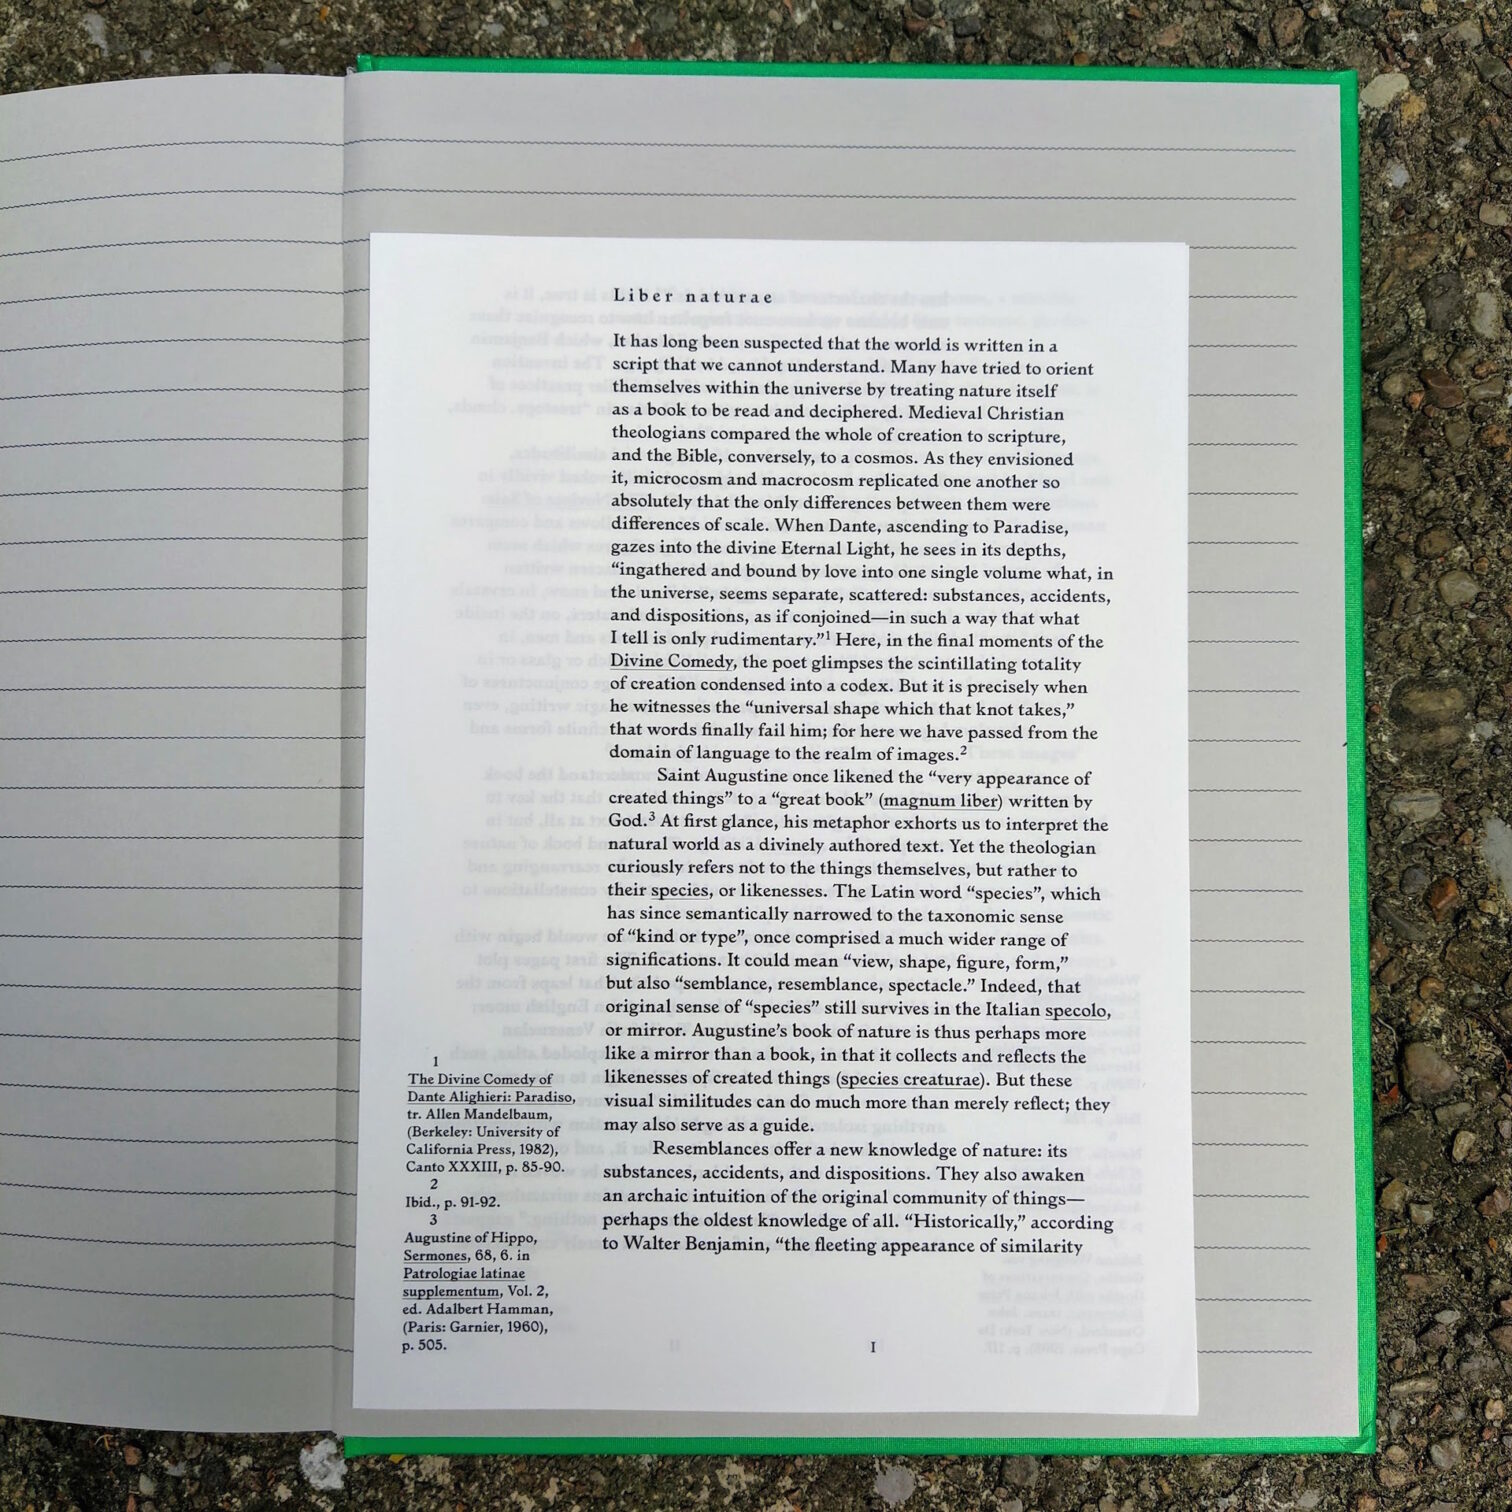 Liber naturae
It has long been suspected that the world is written in a
script that we cannot understand. Many have tried to orient
themselves within the universe by treating nature itself
as a book to be read and deciphered. Medieval Christian
theologians compared the whole of creation to scripture,
and the Bible, conversely, to a cosmos. As they envisioned
it, microcosm and macrocosm replicated one another so
absolutely that the only differences between them were
differences of scale. When Dante, ascending to Paradise,
gazes into the divine Eternal Light, he sees in its depths,
“ingathered and bound by love into one single volume what, in
the universe, seems separate, scattered: substances, accidents,
and dispositions, as if conjoined—in such a way that what
I tell is only rudimentary.”1 Here, in the final moments of the
Divine Comedy, the poet glimpses the scintillating totality
of creation condensed into a codex. But it is precisely when
he witnesses the “universal shape which that knot takes,”
that words finally fail him; for here we have passed from the
domain of language to the realm of images.2
Saint Augustine once likened the “very appearance of
created things” to a “great book” (magnum liber) written by
God.3 At first glance, his metaphor exhorts us to interpret the
natural world as a divinely authored text. Yet the theologian
curiously refers not to the things themselves, but rather to
their species, or likenesses. The Latin word “species”, which
has since semantically narrowed to the taxonomic sense
of “kind or type”, once comprised a much wider range of
significations. It could mean “view, shape, figure, form,”
but also “semblance, resemblance, spectacle.” Indeed, that
original sense of “species” still survives in the Italian specolo,
or mirror. Augustine’s book of nature is thus perhaps more
like a mirror than a book, in that it collects and reflects the
likenesses of created things (species creaturae). But these
visual similitudes can do much more than merely reflect; they
may also serve as a guide.
Resemblances offer a new knowledge of nature: its
substances, accidents, and dispositions. They also awaken
an archaic intuition of the original community of things—
perhaps the oldest knowledge of all. “Historically,” according
to Walter Benjamin, “the fleeting appearance of similarity
1
The Divine Comedy of
Dante Alighieri: Paradiso,
tr. Allen Mandelbaum,
(Berkeley: University of
California Press, 1982),
Canto XXXIII, p. 85-90.
2
Ibid., p. 91-92.
3
Augustine of Hippo,
Sermones, 68, 6. in
Patrologiae latinae
supplementum, Vol. 2,
ed. Adalbert Hamman,
(Paris: Garnier, 1960),
p. 505.
I